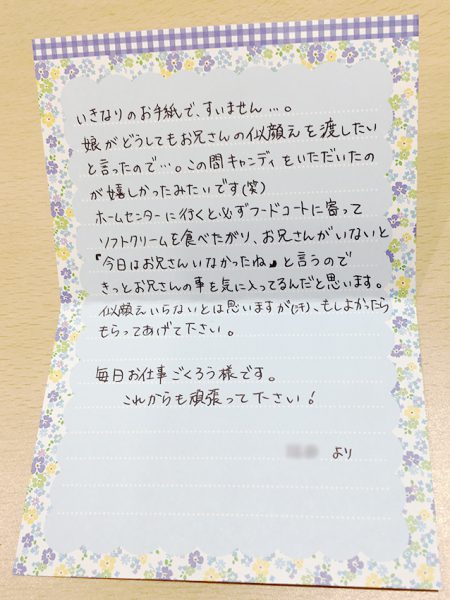 いきなりのお手紙で、すいません…。
娘がどうしてもお兄さんの似顔え を渡したい
と言ったので…。この間キャンディをいただいたの
が嬉しかったみたいです(笑)
ホームセンターに行くと、必ずフードコートに寄って
ソフトクリームを食べたがり、お兄さんがいないと
『今日はお兄さんいなかったね』と言うので
きっとお兄さんの事を気に入ってるんだと思います。
似顔えいらないとは思いますが(汗)、もしよかったら
もらってあげて下さい。
毎日お仕事ごくろう様です。
これからも頑張って下さい!
より